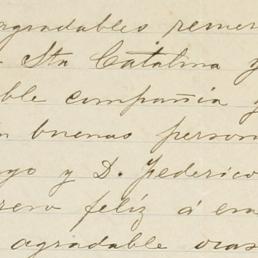 agradables remer
Sta Catalina y
ble compañia y
buenas person
go y D. Federico
reno feliz á
agradable ocas